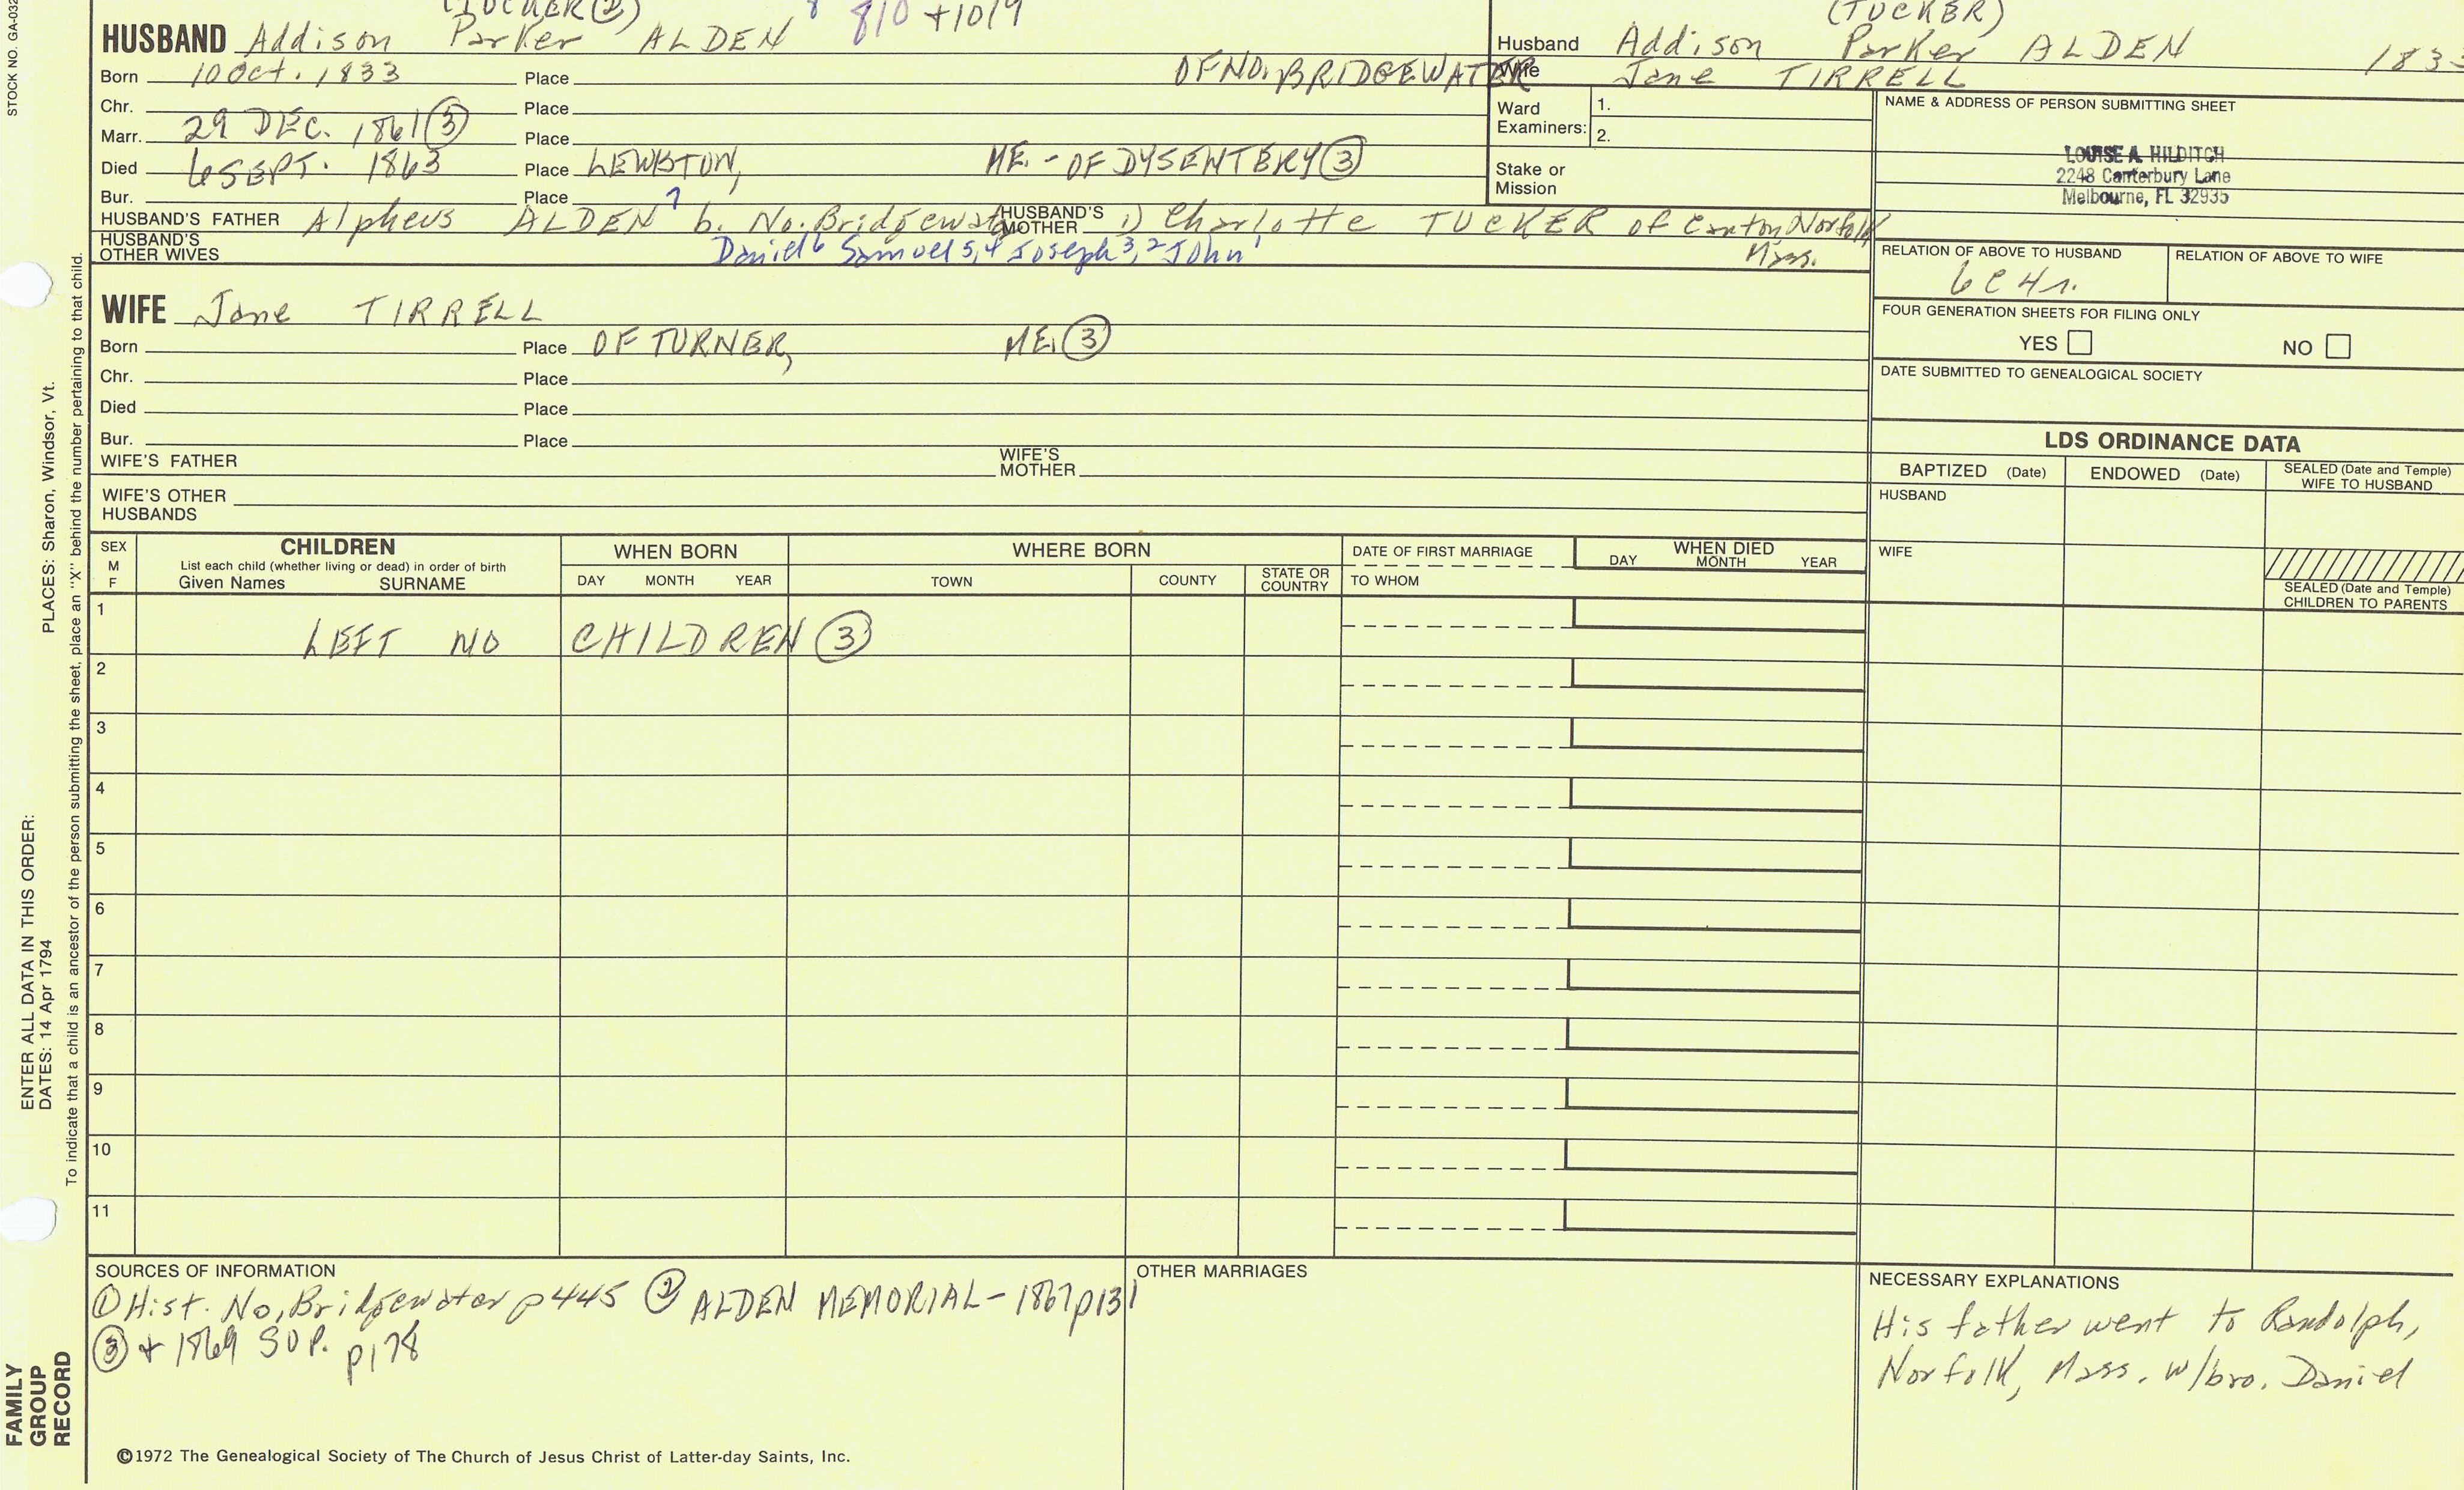 STOCK NO. GA-032
(TUCKER②) 8 810 +1019
HUSBAND Addison Parker ALDEN
Born 10 Oct. 1833 Place OF NO. BRIDGEWATER
Chr. Place
Marr. 29 DEC. 1861 ③ Place
Died 6 SEPT. 1863 Place LEWISTON, ME. - OF DYSENTERY ③
Bur. Place
HUSBAND'S FATHER Alpheus ALDEN 7 b. No. Bridgewater HUSBAND'S MOTHER 1) Charlotte TUCKER of Canton, Norfolk
Mass.
HUSBAND'S OTHER WIVES Daniel 6 Samuel 5,4 Joseph 3,2 John 1
WIFE Jane TIRRELL
Born Place OF TURNER, ME. ③
Chr. Place
Died Place
Bur. Place
WIFE'S FATHER WIFE'S MOTHER
WIFE'S OTHER HUSBANDS
(TUCKER)
Husband Addison Parker ALDEN 1833
Wife Jane TIRRELL
Ward Examiners: 1.
2.
Stake or Mission
NAME & ADDRESS OF PERSON SUBMITTING SHEET
LOUISE A. HILDITCH
2248 Canterbury Lane
Melbourne, FL 32935
RELATION OF ABOVE TO HUSBAND RELATION OF ABOVE TO WIFE
6C4r.
FOUR GENERATION SHEETS FOR FILING ONLY
YES NO
DATE SUBMITTED TO GENEALOGICAL SOCIETY
LDS ORDINANCE DATA
BAPTIZED (Date) ENDOWED (Date) SEALED (Date and Temple) WIFE TO HUSBAND
HUSBAND
WIFE
SEALED (Date and Temple) CHILDREN TO PARENTS
SEX M F
CHILDREN
List each child (whether living or dead) in order of birth
Given Names SURNAME
WHEN BORN
DAY MONTH YEAR
WHERE BORN
TOWN COUNTY STATE OR COUNTRY
DATE OF FIRST MARRIAGE
TO WHOM
WHEN DIED
DAY MONTH YEAR
1
LEFT NO CHILDREN ③
2
3
4
5
6
7
8
9
10
11
SOURCES OF INFORMATION
① Hist. No. Bridgewater p445 ② ALDEN MEMORIAL - 1867 p131
③ + 1869 SUP. p178
OTHER MARRIAGES
NECESSARY EXPLANATIONS
His father went to Randolph,
Norfolk, Mass. w/bro. Daniel
©1972 The Genealogical Society of The Church of Jesus Christ of Latter-day Saints, Inc.
ENTER ALL DATA IN THIS ORDER:
DATES: 14 Apr 1794
PLACES: Sharon, Windsor, Vt.
To indicate that a child is an ancestor of the person submitting the sheet, place an "X" behind the number pertaining to that child.
FAMILY
GROUP
RECORD